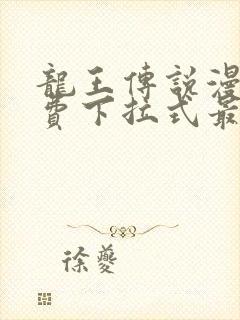 龍王傳說漫
費下拉式最
徐夔